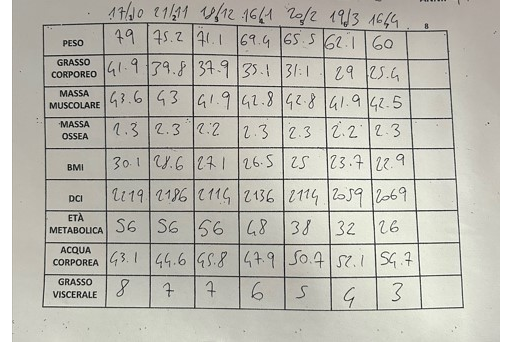 17/10 21/11 18/12 16/1 20/2 19/3 16/4 8
PESO 79 75.2 71.1 69.4 65.5 62.1 60
GRASSO CORPOREO 41.9 39.8 37.9 35.1 31.1 29 25.4
MASSA MUSCOLARE 43.6 43 41.9 42.8 42.8 41.9 42.5
MASSA OSSEA 2.3 2.3 2.2 2.3 2.3 2.2 2.3
BMI 30.1 28.6 27.1 26.5 25 23.7 22.9
DCI 2219 2186 2114 2136 2114 2059 2069
ETÀ METABOLICA 56 56 56 48 38 32 26
ACQUA CORPOREA 43.1 44.6 45.8 47.9 50.7 52.1 54.7
GRASSO VISCERALE 8 7 7 6 5 4 3